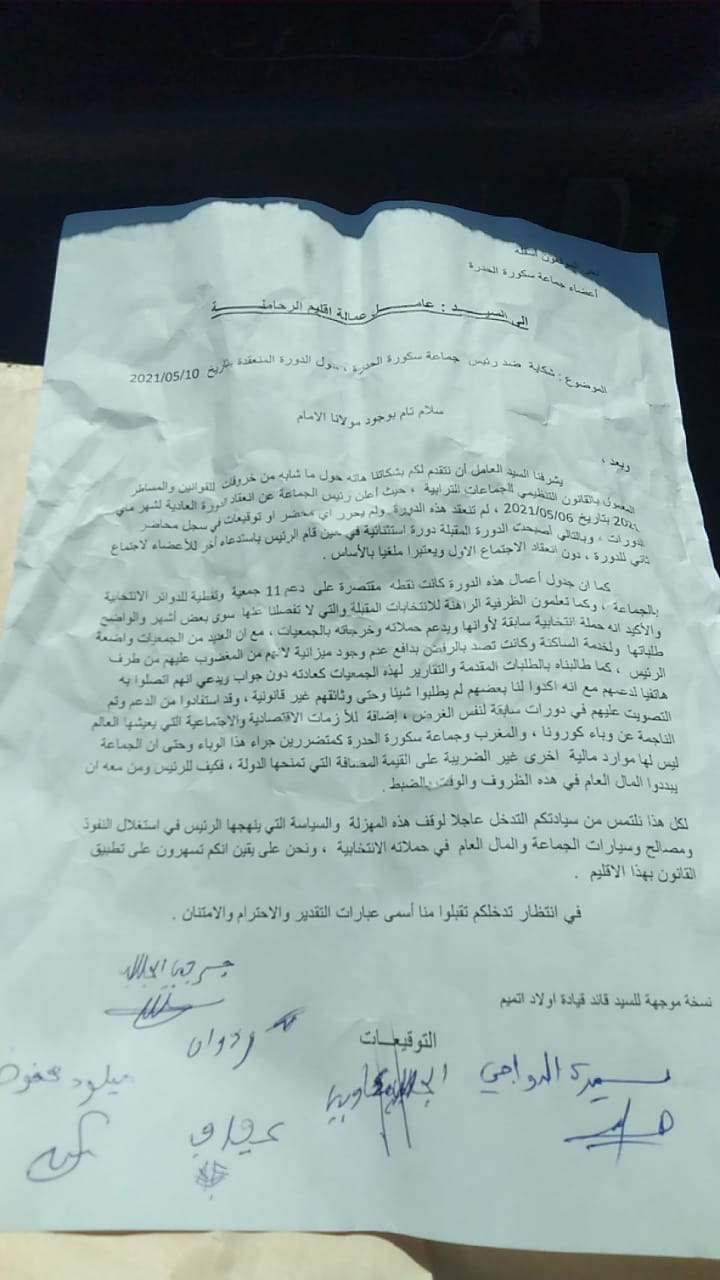 نحن الموقعون أسفله
أعضاء جماعة سكورة الحدرة
الى السيد : عامل عمالة اقليم الرحامنة
الموضوع : شكاية ضد رئيس جماعة سكورة الحدرة ، حول الدورة المنعقدة بتاريخ 2021/05/10
سلام تام بوجود مولانا الامام
وبعد ،
يشرفنا السيد العامل أن نتقدم لكم بشكاتنا هاته حول ما شابه من خروقات للقوانين والمساطر
المعمول بالقانون التنظيمي للجماعات الترابية ، حيث أعلن رئيس الجماعة عن انعقاد الدورة العادية لشهر ماي
2021 بتاريخ 2021/05/06 ، لم تنعقد هذه الدورة ولم يحرر اي محضر او توقيعات في سجل محاضر
الدورات ، وبالتالي أصبحت الدورة المقبلة دورة استثنائية في حين قام الرئيس باستدعاء آخر للأعضاء لاجتماع
ثاني للدورة ، دون انعقاد الاجتماع الاول ويعتبرا ملغيا بالأساس .
كما ان جدول أعمال هذه الدورة كانت نقطه مقتصرة على دعم 11 جمعية وتغطية للدوائر الانتخابية
بالجماعة ، وكما تعلمون الظرفية الراهنة للانتخابات المقبلة والتي لا تفصلنا عنها سوى بعض أشهر والواضح
والأكيد انه حملة انتخابية سابقة لأوانها ويدعم حملاته وخرجاته بالجمعيات ، مع ان العديد من الجمعيات واضعة
طلباتها ولخدمة الساكنة وكانت تصد بالرفض بدافع عدم وجود ميزانية لانهم من المغضوب عليهم من طرف
الرئيس ، كما طالبناه بالطلبات المقدمة والتقارير لهذه الجمعيات كعادته دون جواب ويدعي انهم اتصلوا به
هاتفيا لدعمهم مع انه اكدوا لنا بعضهم لم يطلبوا شيئا وحتى وثائقهم غير قانونية ، وقد استفادوا من الدعم وتم
التصويت عليهم في دورات سابقة لنفس الغرض ، إضافة للأ زمات الاقتصادية والاجتماعية التي يعيشها العالم
الناجمة عن وباء كورونا ، والمغرب وجماعة سكورة الحدرة كمتضررين جراء هذا الوباء وحتى ان الجماعة
ليس لها موارد مالية اخرى غير الضريبة على القيمة المضافة التي تمنحها الدولة ، فكيف للرئيس ومن معه ان
يبددوا المال العام في هده الظروف والوقت بالضبط .
لكل هذا نلتمس من سيادتكم التدخل عاجلا لوقف هذه المهزلة والسياسة التي ينهجها الرئيس في استغلال النفوذ
ومصالح وسيارات الجماعة والمال العام في حملاته الانتخابية ، ونحن على يقين انكم تسهرون على تطبيق
القانون بهذا الاقليم .
في انتظار تدخلكم تقبلوا منا أسمى عبارات التقدير والاحترام والامتنان .
نسخة موجهة للسيد قائد قيادة اولاد اتميم
التوقيعات
ميلود محفوظ